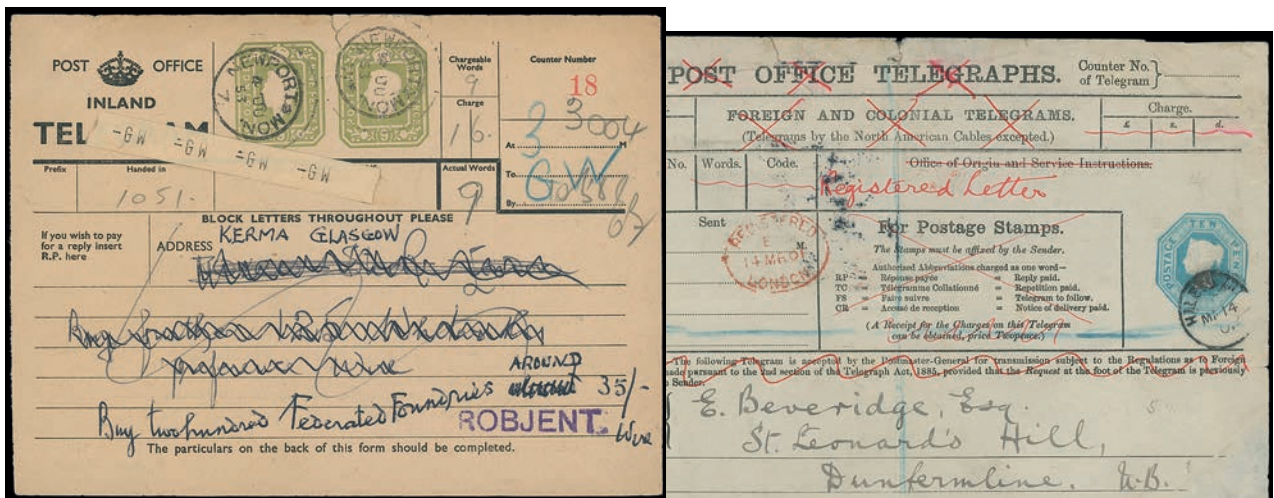 POST OFFICE
INLAND
TEL AM
MG- MG= MG= MG-
Chargeable Words
9
Charge
Counter Number
18
3004
3
At M
To
By
GW
Prefix
Handed in
1051.
Actual Words
9
BLOCK LETTERS THROUGHOUT PLEASE
If you wish to pay
for a reply insert
R.P. here
ADDRESS
KERMA GLASGOW
AROUND
Buy two hundred Federated Foundries 35/-
Wire
ROBJENT.
The particulars on the back of this form should be completed.
NEWPORT MON. 7
53
NEWPORT MON.
POST OFFICE TELEGRAPHS.
Counter No.
of Telegram
FOREIGN AND COLONIAL TELEGRAMS.
(Telegrams by the North American Cables excepted.)
Charge.
£ s. d.
No. Words. Code.
Office of Origin and Service Instructions.
Registered Letter
Sent
M.
REGISTERED
E
14 MR 01
LONDON
For Postage Stamps.
The Stamps must be affixed by the Sender.
Authorized Abbreviations charged as one word—
RP = Réponse payée = Reply paid.
TC = Télégramme Collationné = Repetition paid.
FS = Faire suivre = Telegram to follow.
CR = Accusé de réception = Notice of delivery paid.
(A Receipt for the Charges on this Telegram
can be obtained, price Twopence.)
POSTAGE TEN PENCE
MR 14
The following Telegram is accepted by the Postmaster-General for transmission subject to the Regulations as to Foreign
made pursuant to the 2nd section of the Telegraph Act, 1885, provided that the Request at the foot of the Telegram is previously
Sender.
E. Beveridge, Esq.
St. Leonard's Hill,
Dunfermline. N.B.